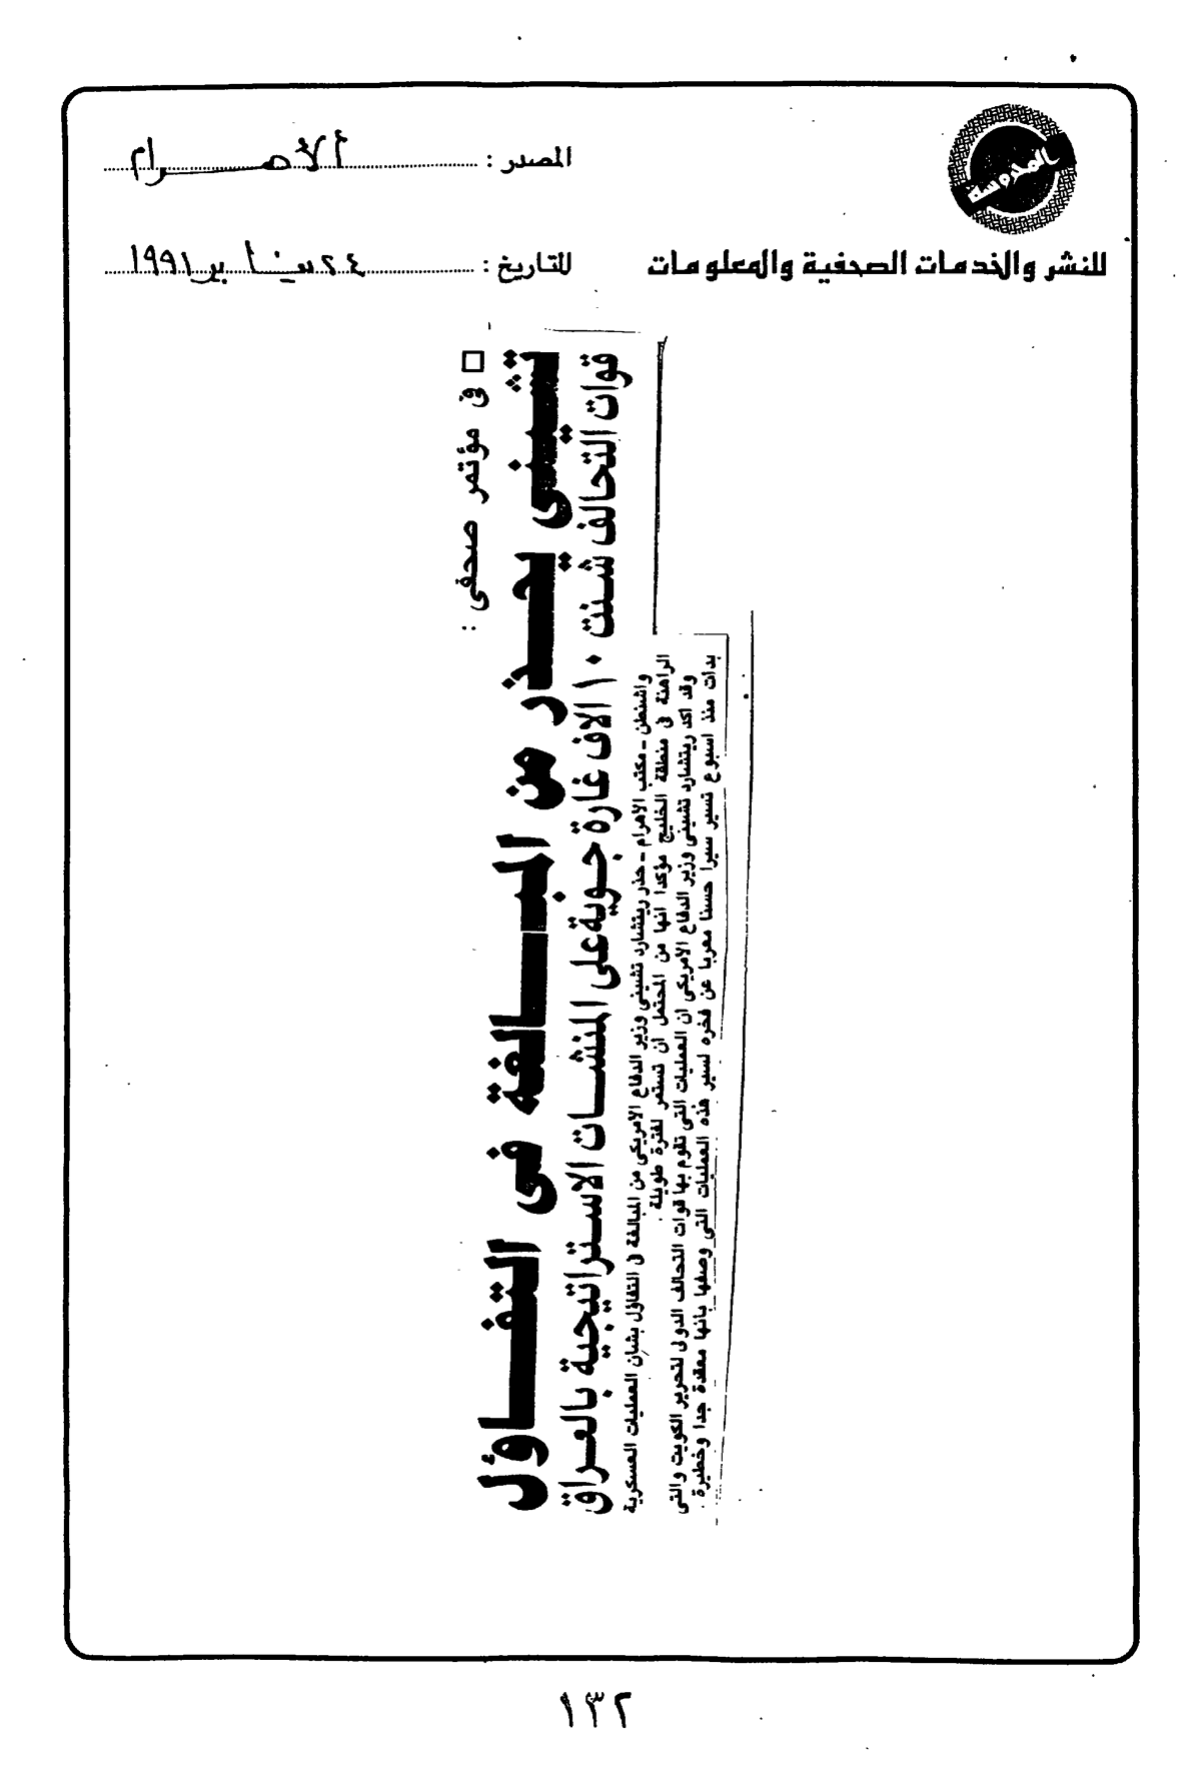 المحروسة
للنشر والخدمات الصحفية والمعلومات
المصدر : الأهرام
للتاريخ : ٢٤ يناير ١٩٩١
□ فى مؤتمر صحفى :
تشينى يحذر من المبالغة فى التفاؤل
قوات التحالف شنت ١٠ الاف غارة جوية على المنشات الاستراتيجية بالعراق
واشنطن - مكتب الاهرام - حذر ريتشارد تشينى وزير الدفاع الامريكى من المبالغة فى التفاؤل بشان العمليات العسكرية
الراهنة فى منطقة الخليج مؤكدا انها من المحتمل ان تستمر لفترة طويلة .
وقد اكد ريتشارد تشينى وزير الدفاع الامريكى ان العمليات التى تقوم بها قوات التحالف الدولى لتحرير الكويت والتى
بدات منذ اسبوع تسير سيرا حسنا معربا عن فخره لسير هذه العمليات التى وصفها بانها معقدة جدا وخطيرة .
١٣٢